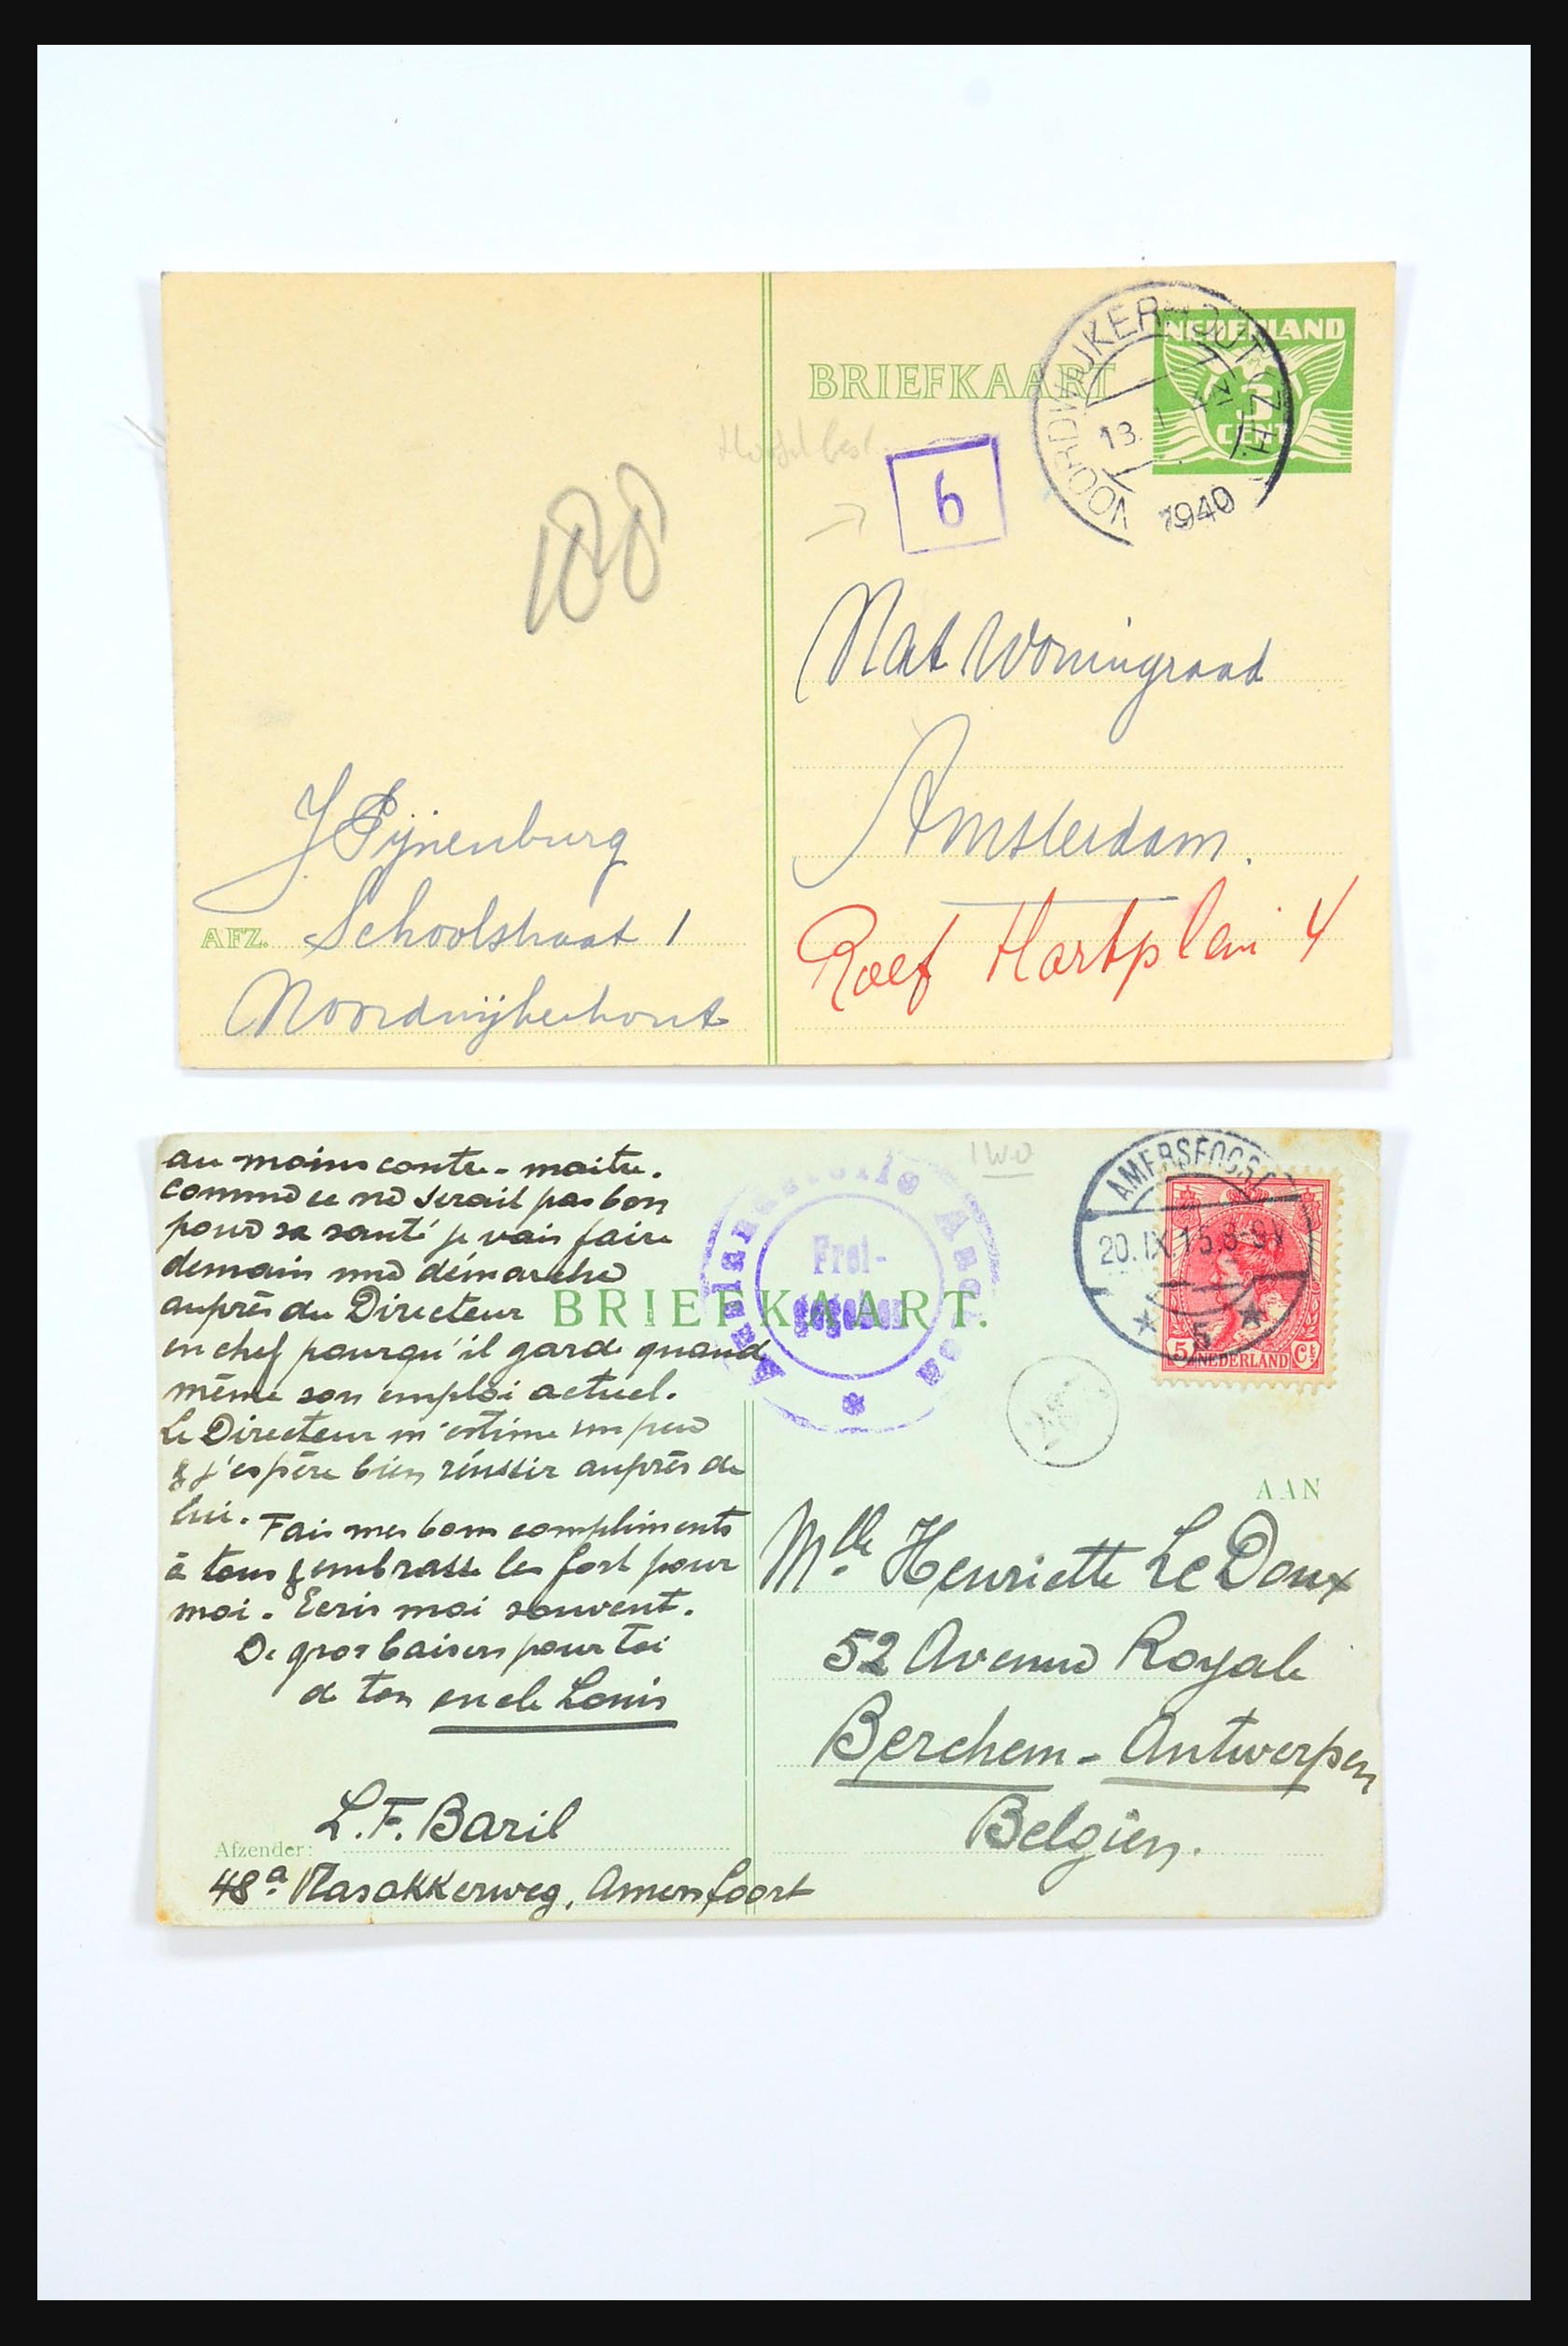 BRIEFKAART
NEDERLAND
3
CENT
NOORDWIJKERHOUT (Z.H.)
13.
1940
6
100
Nat Woningraad
Amsterdam.
Roelof Hartplein 4
J Pijnenburg
AFZ. Schoolstraat 1
Noordwijkerhout
au moins contre-maitre.
comme ce ne serait pas bon
pour sa santé je vais faire
demain une démarche
auprès du Directeur
en chef pourqu'il garde quand
même son emploi actuel.
Le Directeur m'estime un peu
& j'espère bien réussir auprès de
lui. Fais mes bons compliments
à tous & embrasse les fort pour
moi. Ecris moi souvent.
De gros baisers pour toi
de ton oncle Louis
L.F. Baril
Afzender:
48a. Vlasakkerweg, Amersfoort
1WO
BRIEFKAART.
Auslandsstelle Aachen
Frei-
gegeben
AMERSFOORT
20.IX.15.8-9V
5
5 NEDERLAND Ct
AAN
Mlle. Henriette Le Doux
52 Avenue Royale
Berchem - Antwerpen
Belgien.